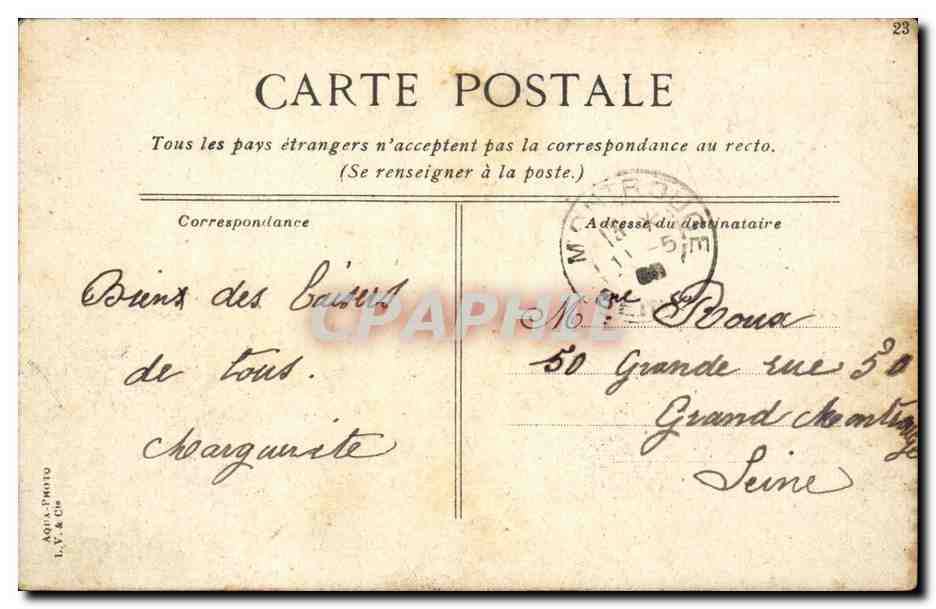 23
CARTE POSTALE
Tous les pays étrangers n'acceptent pas la correspondance au recto.
(Se renseigner à la poste.)
Correspondance
Adresse du destinataire
MONTROUGE
11 -5
SEINE
Biens des baisers
de tous.
Marguerite
Mme Roux
50 Grande rue 50
Grand Montrouge
Seine
CPAPHIL
AQUA-PHOTO
L. V. & Cie